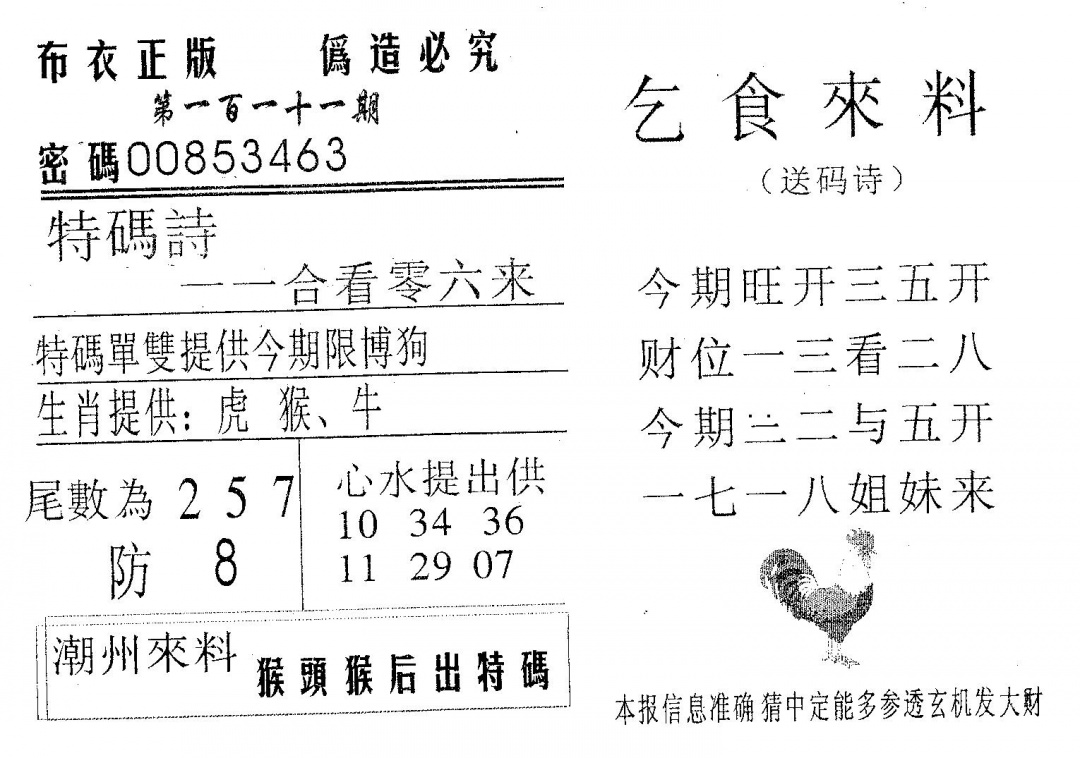 布衣正版 僞造必究
第一百一十一期
密碼00853463
特碼詩
一一合看零六来
特碼單雙提供今期限博狗
生肖提供：虎 猴、牛
尾數為 2 5 7
防 8
心水提出供
10 34 36
11 29 07
潮州來料 猴頭猴后出特碼
乞食來料
（送码诗）
今期旺开三五开
财位一三看二八
今期二与五开
一七一八姐妹来
本报信息准确猜中定能多参透玄机发大财